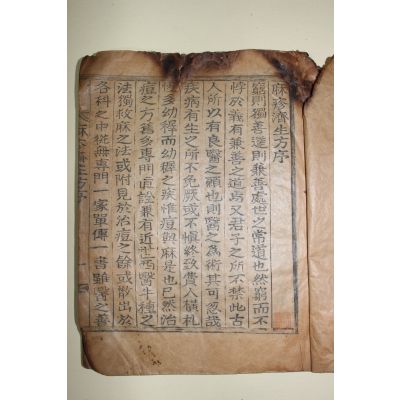 麻疹濟生方序
窮則獨善達則兼善處世之常道也然窮而不
悖於義有兼善之道焉又君子之所不禁此古
人所以有良醫之願也則醫之為術其可忽哉
疾病有生之所不免厥或不愼終致貴人橫札
多幼稺而幼稺之疾惟痘與麻是也已然治
痘之方舊多專門眞詮兼有近世西醫牛種之
法獨救麻之法或附見於治痘之餘或散出於
各科之中從無專門一家單傳一書雖醫之善